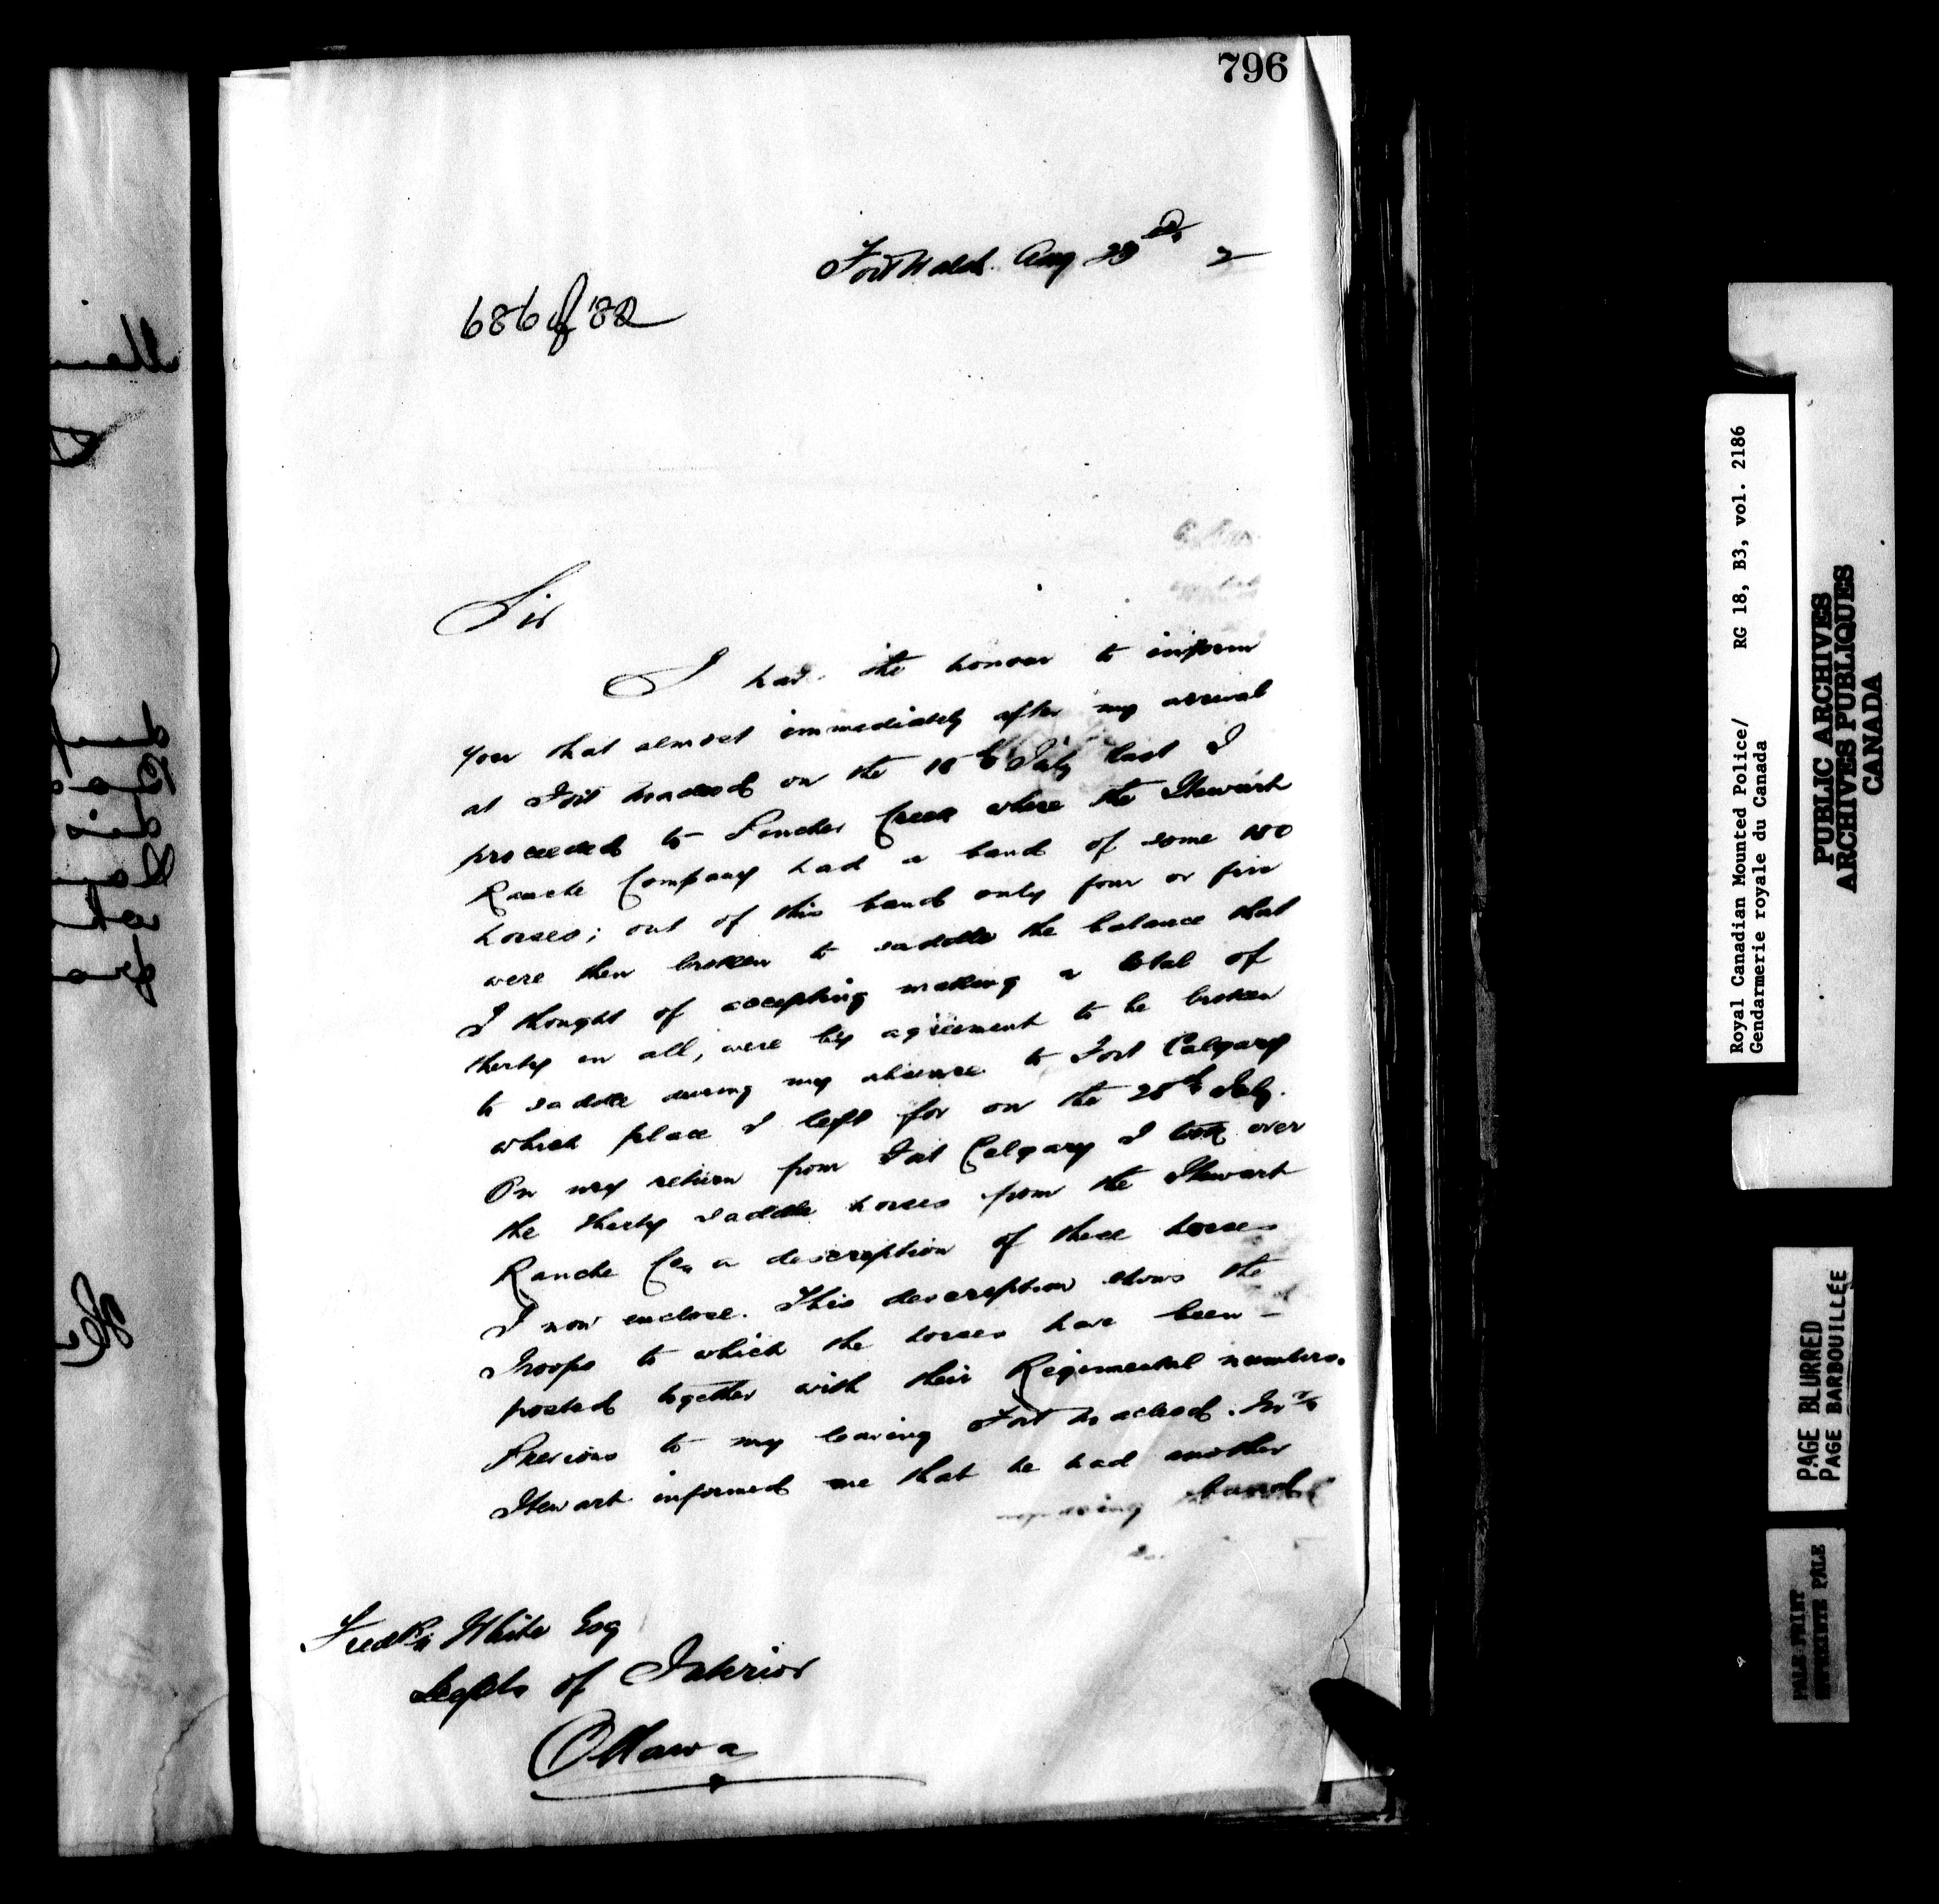 796
Fort Walsh. Aug 23rd 2
686 of '82
Sir
I had the honour to inform
you that almost immediately after my arrival
at Fort Macleod on the 18th July last I
proceeded to Pincher Creek where the Stewart
Ranche Company had a band of some 100
horses; out of this band only four or five
were then broken to saddle the balance that
I thought of accepting making a total of
thirty in all, were by agreement to be broken
to saddle during my absence to Fort Calgary
which place I left for on the 25th July.
On my return from Fort Calgary I took over
the thirty saddle horses from the Stewart
Ranche Co, a description of these horses
I now enclose. This description shows the
Troops to which the horses have been -
posted together with their Regimental numbers.
Previous to my leaving Fort Macleod. Mr
Stewart informed me that he had another
band
Fredk White Esq
Deptt of Interior
Ottawa
Royal Canadian Mounted Police/ RG 18, B3, vol. 2186
Gendarmerie royale du Canada
PUBLIC ARCHIVES
ARCHIVES PUBLIQUES
CANADA
PAGE BLURRED
PAGE BARBOUILLÉE
PALE PRINT
IMPRIMERIE PALE